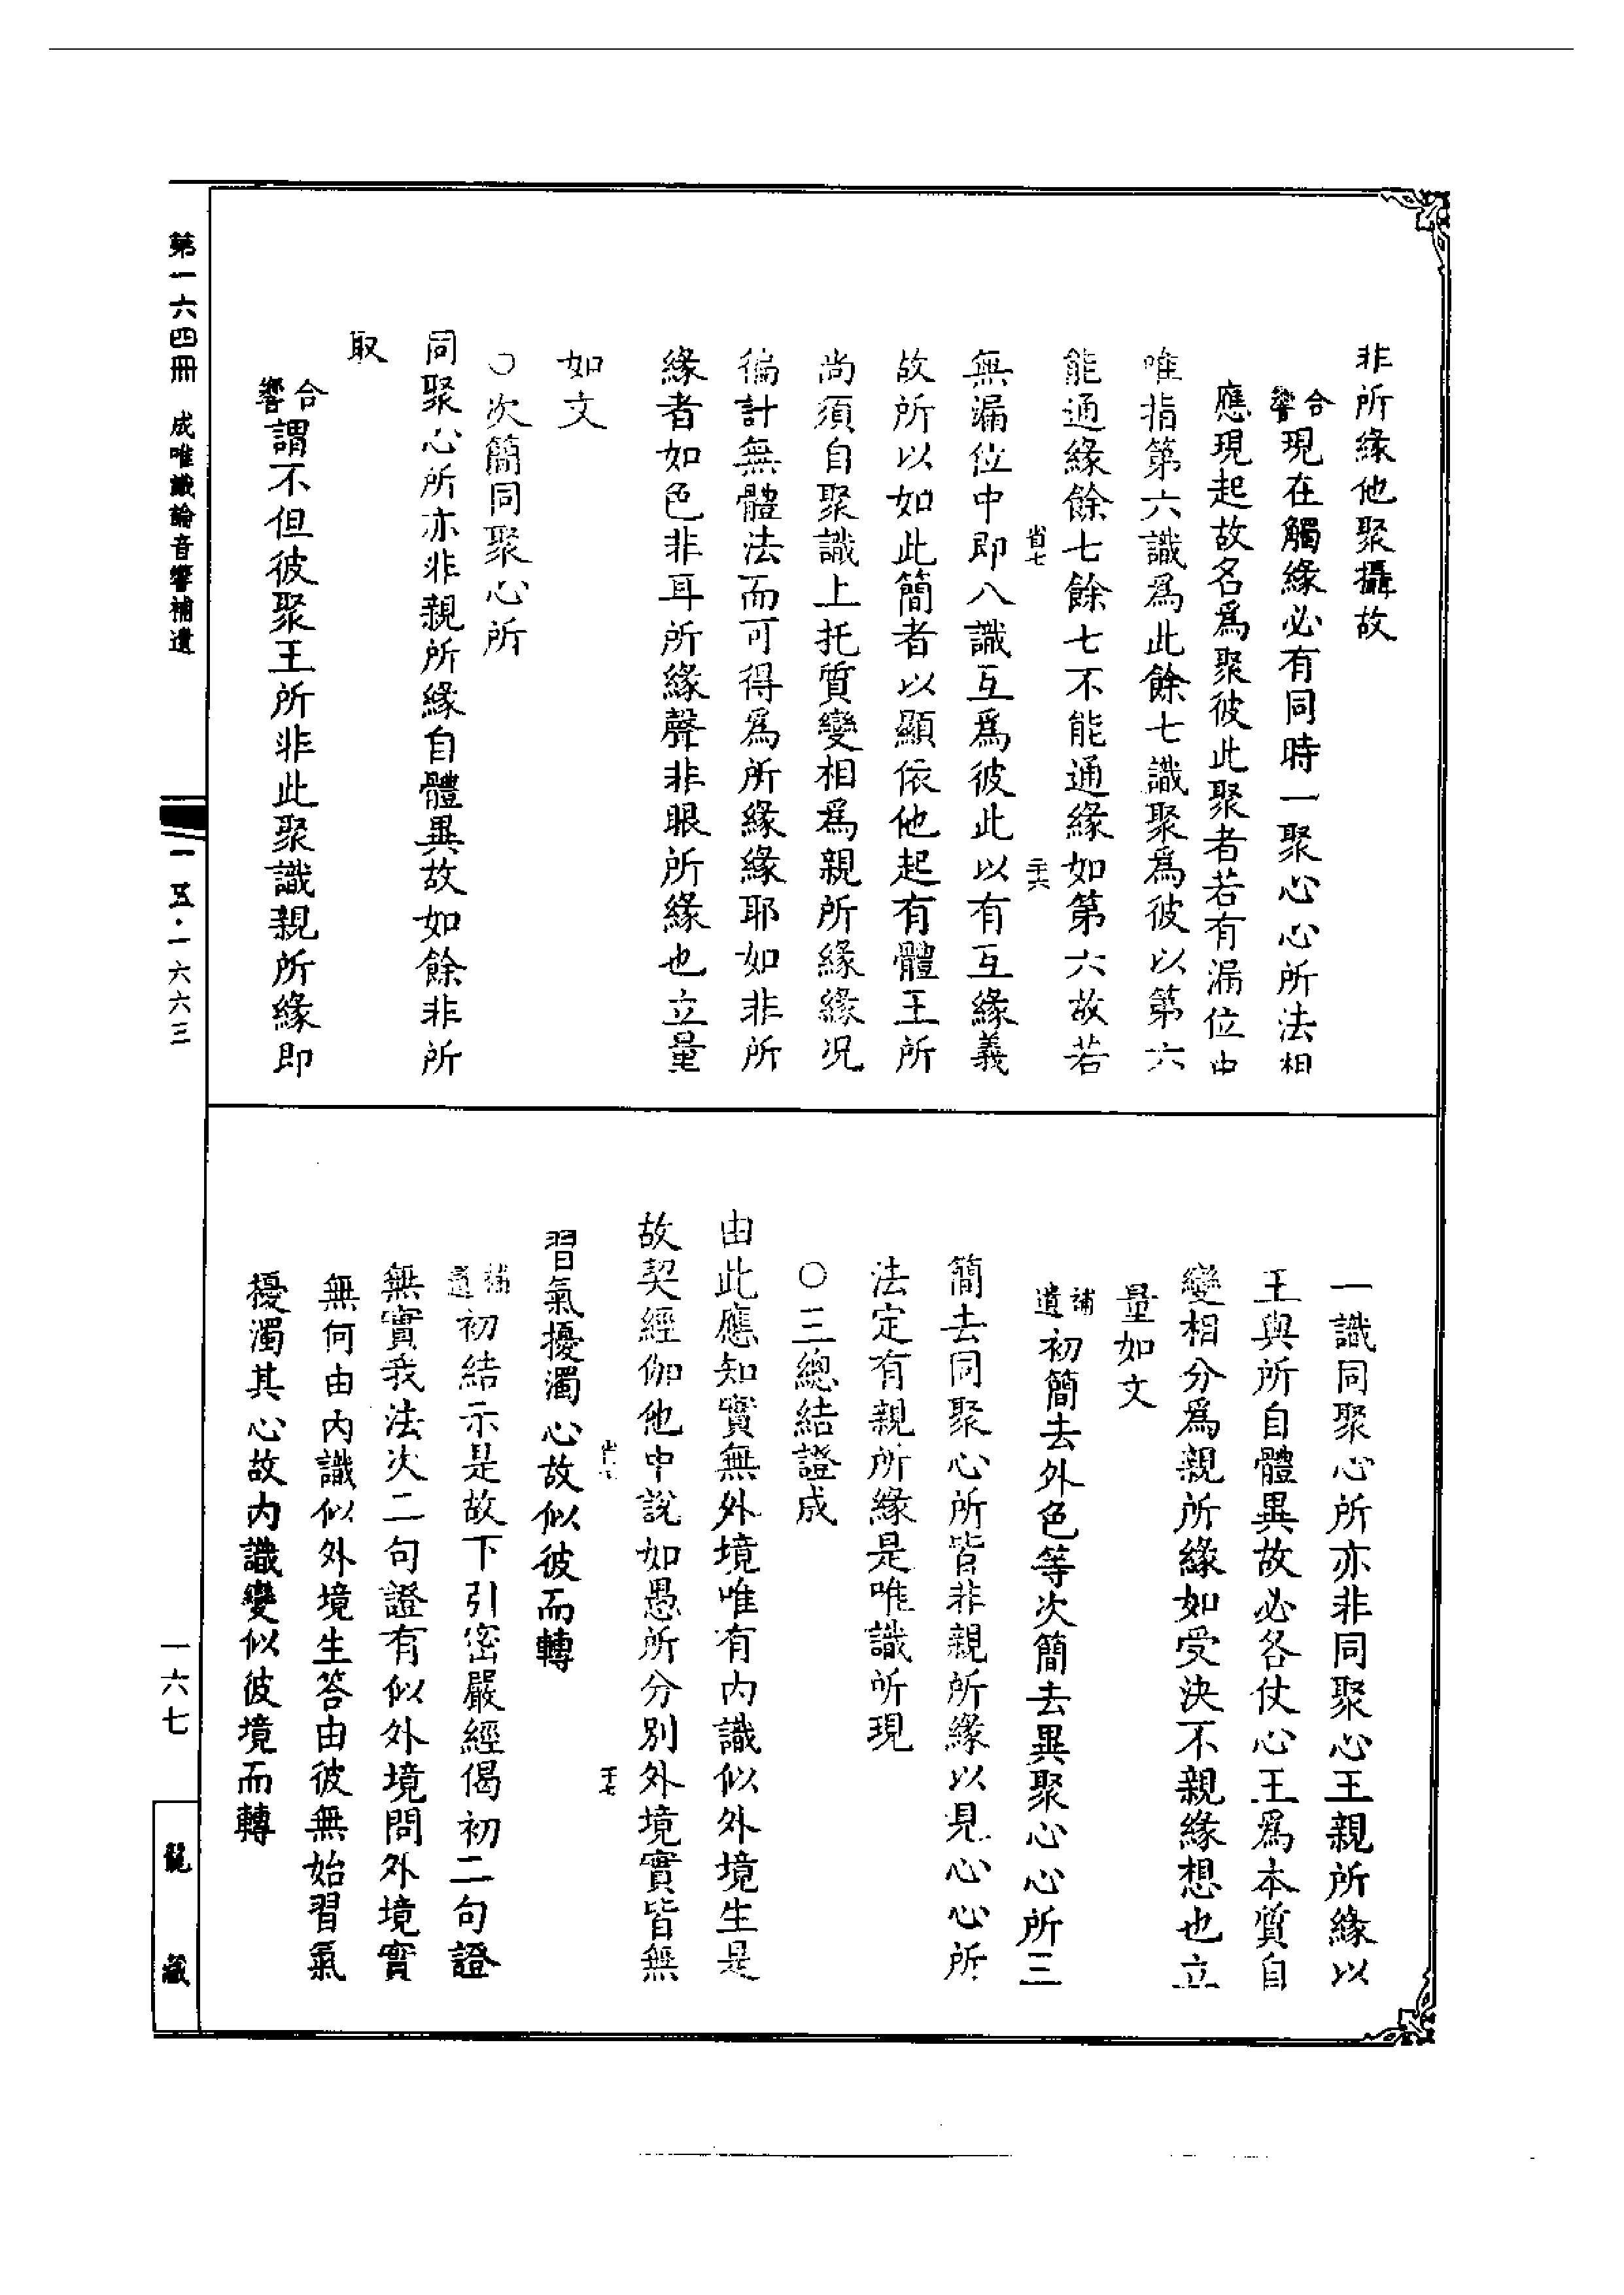 非所緣他聚攝故
合響現在觸緣必有同時一聚心心所法相
應現起故名爲聚彼此聚者若有漏位中
唯指第六識爲此餘七識聚爲彼以第六
能通緣餘七餘七不能通緣如第六故若
省七 二十六
無漏位中即八識互爲彼此以有互緣義
故所以如此簡者以顯依他起有體王所
尚須自聚識上托質變相爲親所緣緣況
徧計無體法而可得爲所緣緣耶如非所
緣者如色非耳所緣聲非眼所緣也立量
如文
○次簡同聚心所
同聚心所亦非親所緣自體異故如餘非所
取
合響謂不但彼聚王所非此聚識親所緣即
一識同聚心所亦非同聚心王親所緣以
王與所自體異故必各仗心王爲本質自
變相分爲親所緣如受決不親緣想也立
量如文
補遺初簡去外色等次簡去異聚心心所三
簡去同聚心所皆非親所緣以見心心所
法定有親所緣是唯識所現
○三總結證成
由此應知實無外境唯有內識似外境生是
故契經伽他中說如愚所分別外境實皆無
習氣擾濁心故似彼而轉
補遺初結示是故下引密嚴經偈初二句證
無實我法次二句證有似外境問外境實
無何由內識似外境生答由彼無始習氣
擾濁其心故內識變似彼境而轉
第一六四冊 成唯識論音響補遺
一五·一六六三
一六七
龍藏